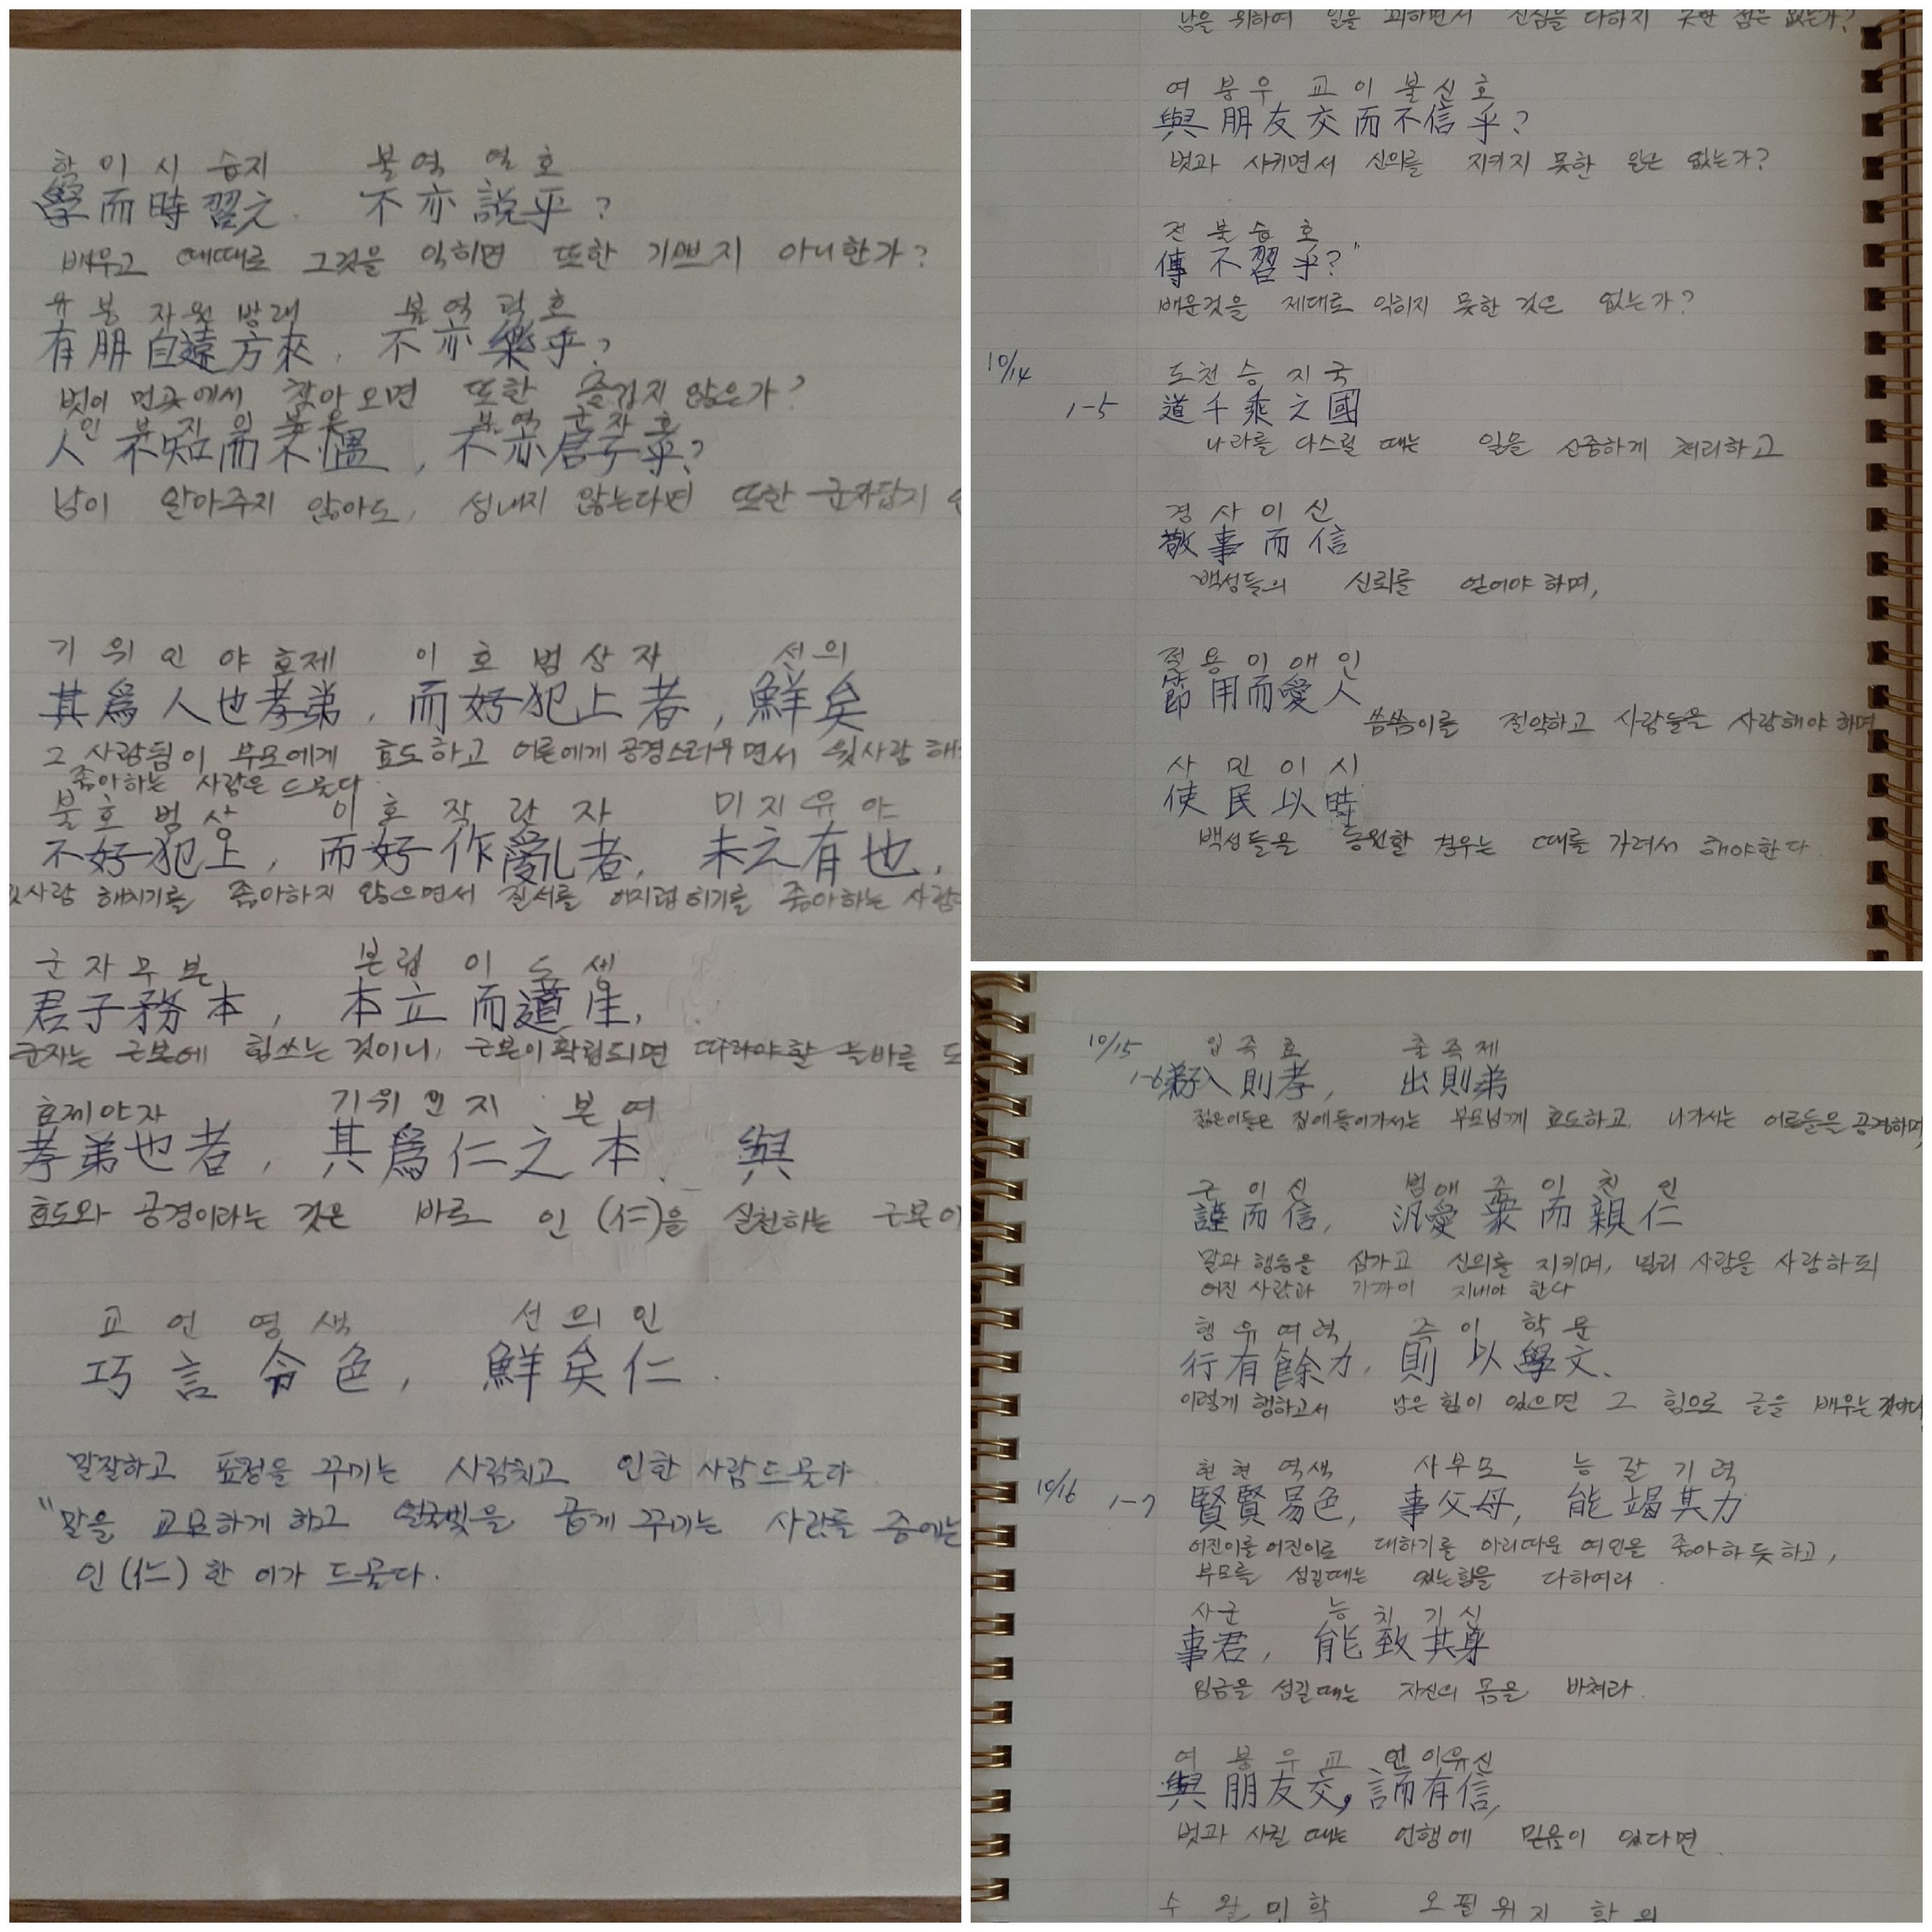 학이시습지 불역열호
學而時習之. 不亦說乎?
배우고 때때로 그것을 익히면 또한 기쁘지 아니한가?
유붕자원방래 불역락호
有朋自遠方來, 不亦樂乎?
벗이 먼곳에서 찾아오면 또한 즐겁지 않은가?
인부지이불온 불역군자호
人不知而不慍, 不亦君子乎?
남이 알아주지 않아도, 성내지 않는다면 또한 군자답지
기위인야효제 이호범상자 선의
其爲人也孝弟, 而好犯上者, 鮮矣
그 사람됨이 부모에게 효도하고 어른에게 공경스러우면서 윗사람 해
좋아하는 사람은 드물다.
불호범상 이호작란자 미지유야
不好犯上, 而好作亂者, 未之有也,
사람 해치기를 좋아하지 않으면서 질서를 어지럽히기를 좋아하는 사람
군자무본 본립이도생
君子務本, 本立而道生,
군자는 근본에 힘쓰는 것이니, 근본이 확립되면 따라야할 올바른 도
효제야자 기위인지본여
孝弟也者, 其爲仁之本、與
효도와 공경이라는 것은 바로 인(仁)을 실천하는 근본이
교언영색 선의인
巧言令色, 鮮矣仁.
말잘하고 표정을 꾸미는 사람치고 인한 사람드물다
"말을 교묘하게 하고 얼굴빛을 곱게 꾸미는 사람들 중에는
인(仁)한 이가 드물다.
남을 위하여 일을 꾀하면서 진심을 다하지 못한 점은 없는가?
여붕우교이불신호
與朋友交而不信乎?
벗과 사귀면서 신의를 지키지 못한 일은 없는가?
전불습호
傳不習乎?"
배운것을 제대로 익히지 못한 것은 없는가?
10/14 도천승지국
1-5 道千乘之國
나라를 다스릴 때는 일을 신중하게 처리하고
경사이신
敬事而信
백성들의 신뢰를 얻어야 하며,
절용이애인
節用而愛人
씀씀이를 절약하고 사람들을 사랑해야 하며
사민이시
使民以時
백성들을 동원할 경우는 때를 가려서 해야한다.
10/15 입즉효 출즉제
1-6 弟子入則孝, 出則弟
젊은이들은 집에들어가서는 부모님께 효도하고, 나가서는 어른들을 공경하며,
근이신 범애중이친인
謹而信, 汎愛衆而親仁
말과 행동을 삼가고 신의를 지키며, 널리 사람을 사랑하되
어진 사람과 가까이 지내야 한다
행유여력 즉이학문
行有餘力, 則以學文、
이렇게 행하고서 남은 힘이 있으면 그 힘으로 글을 배우는 것이다
현현역색 사부모 능갈기력
10/16 1-7 賢賢易色, 事父母, 能竭其力
어진이를 어진이로 대하기를 아리따운 여인을 좋아하듯하고,
부모를 섬길때는 있는힘을 다하여라.
사군 능치기신
事君, 能致其身
임금을 섬길때는 자신의 몸을 바쳐라.
여붕우교 언이유신
與朋友交, 言而有信,
벗과 사귈 때는 언행에 믿음이 있다면.
수왈미학 오필위지학의